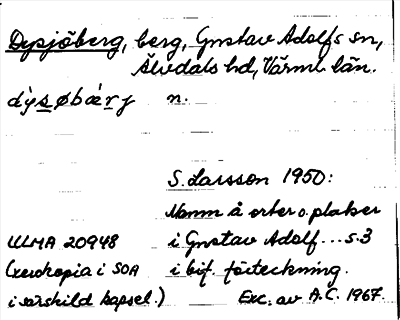 Dysjöberg, berg, Gustav Adolfs sn,
Älvdals hd, Värml. län.
dysøbærj n.
S. Larsson 1950:
Namn å orter o. platser
ULMA 20948 i Gustav Adolf... s. 3
(xerokopia i SOA i bif. förteckning.
i särskild kapsel.) Exc. av A.C. 1967.